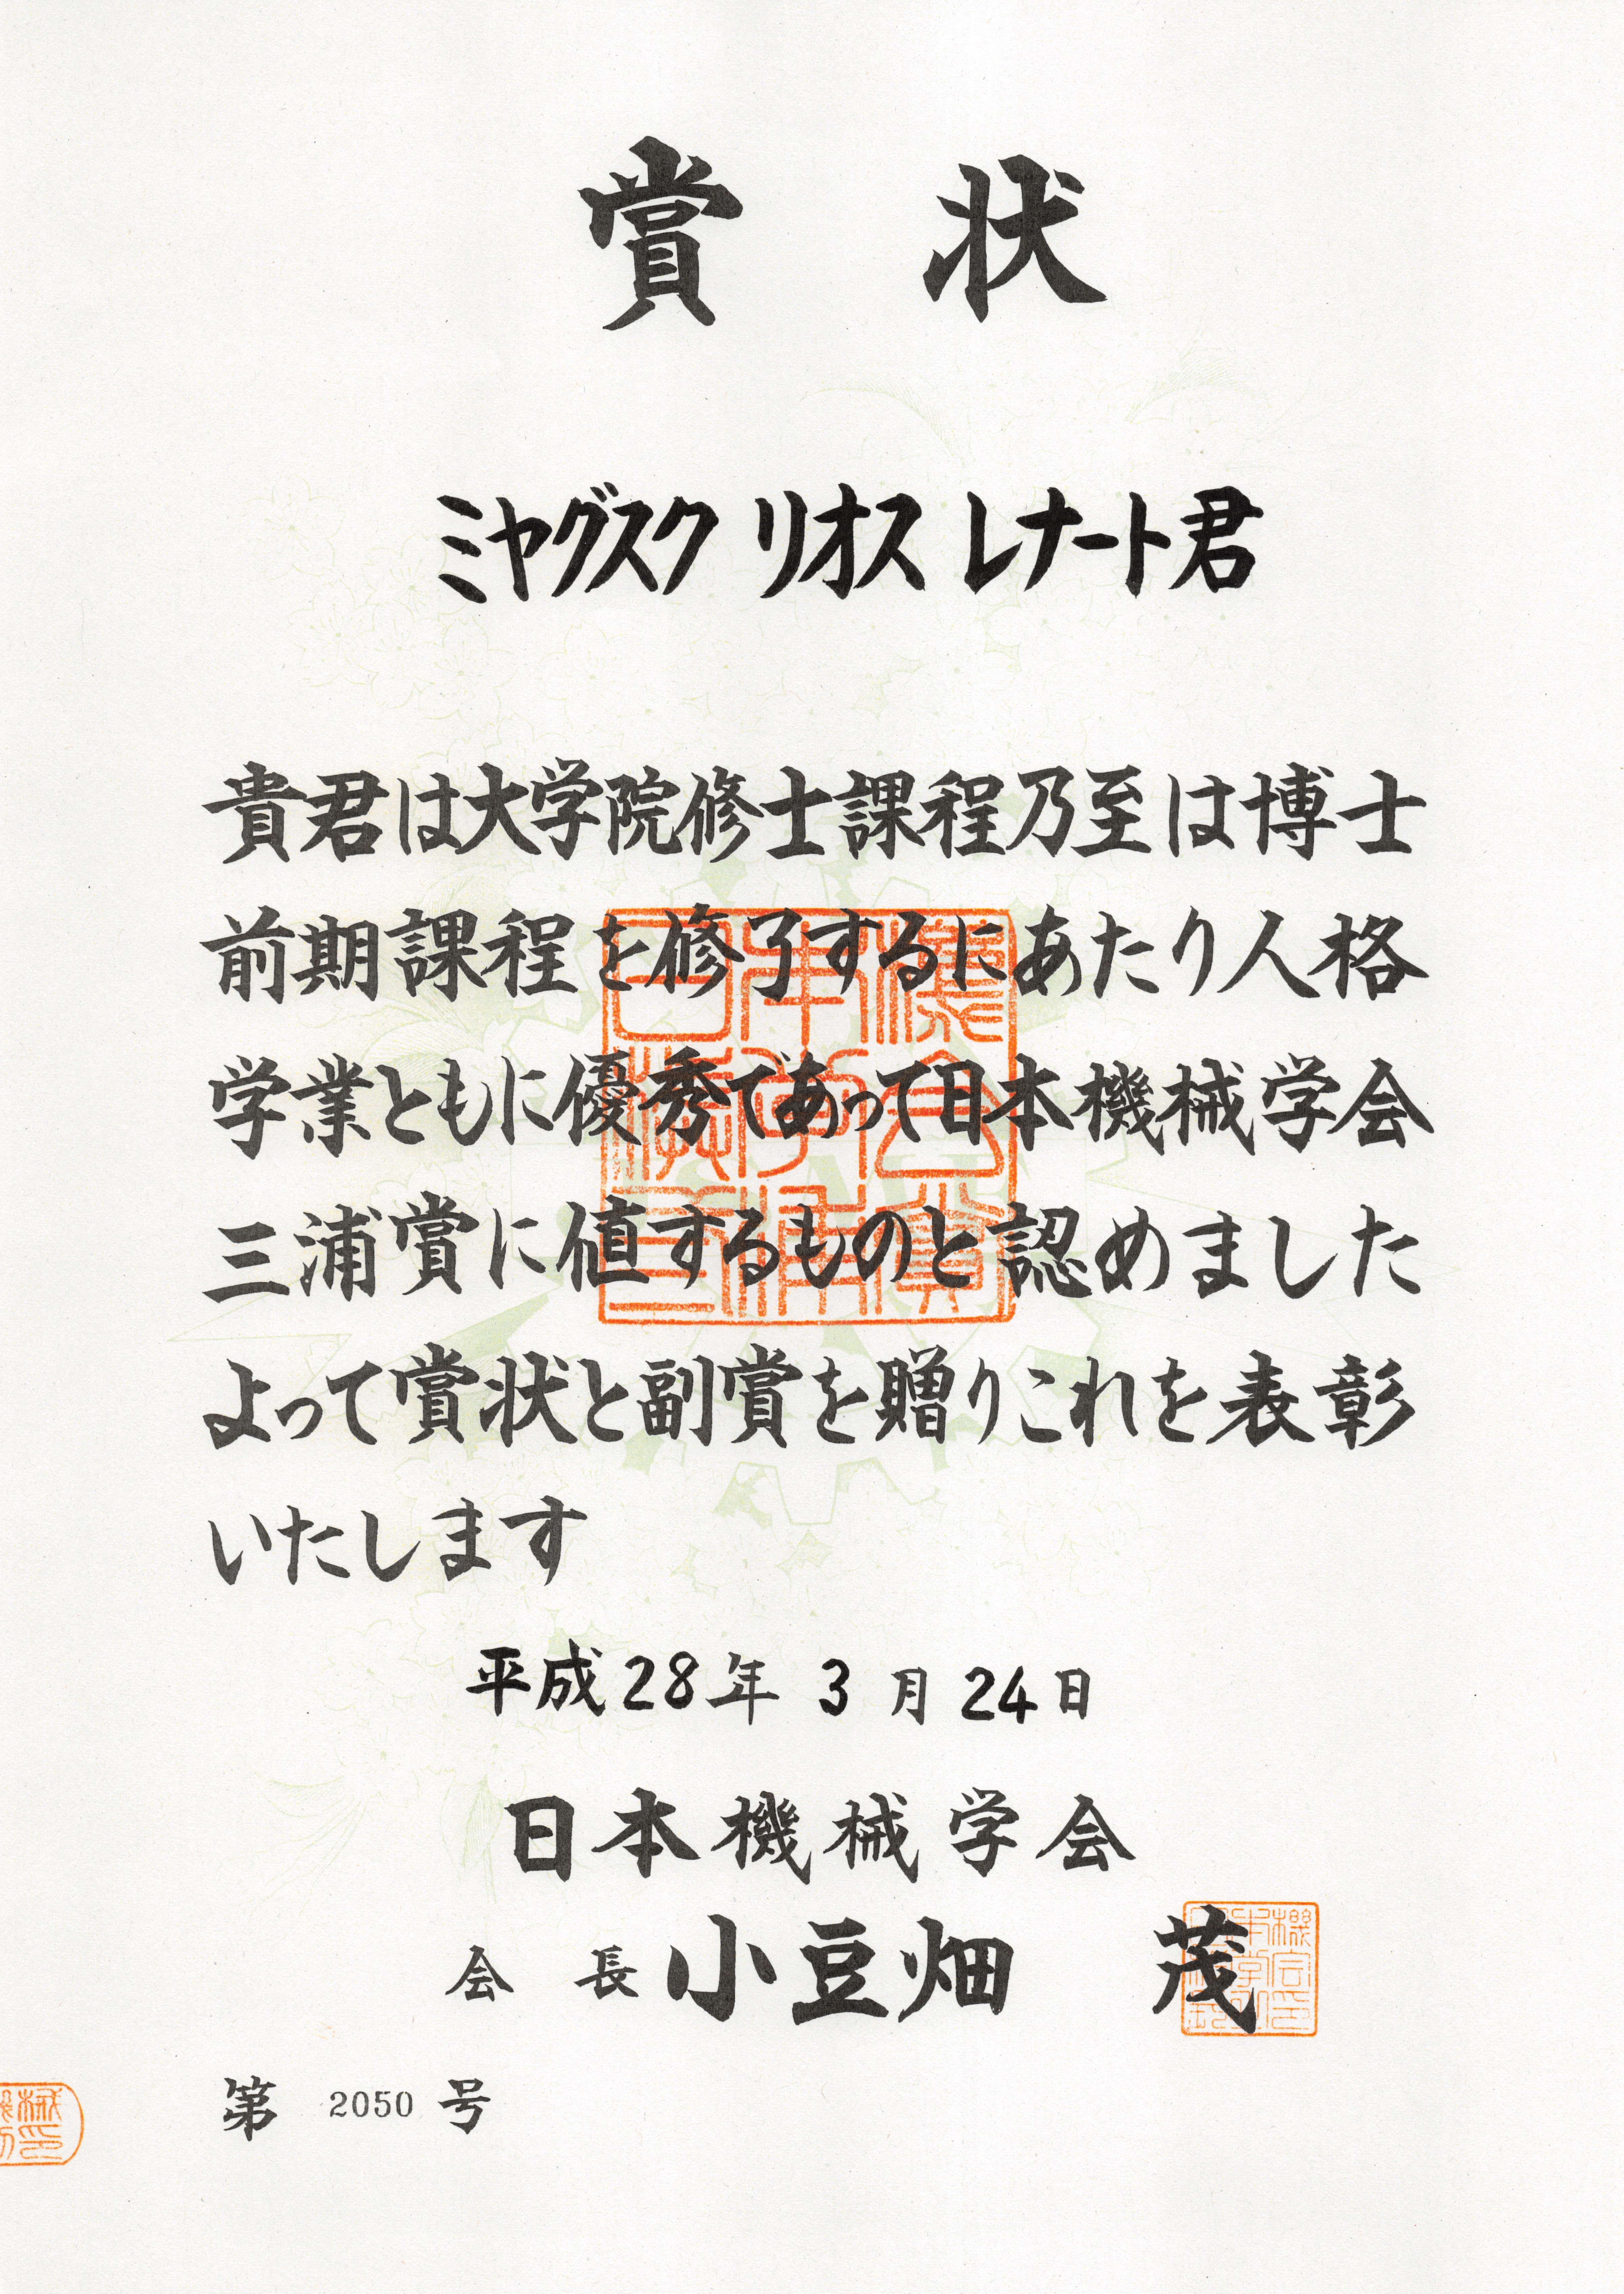 賞状
ミヤグスク リオス レナート君
貴君は大学院修士課程乃至は博士
前期課程を修了するにあたり人格
学業ともに優秀であって日本機械学会
三浦賞に値するものと認めました
よって賞状と副賞を贈りこれを表彰
いたします
平成28年 3月24日
日本機械学会
会長 小豆畑 茂
第 2050 号